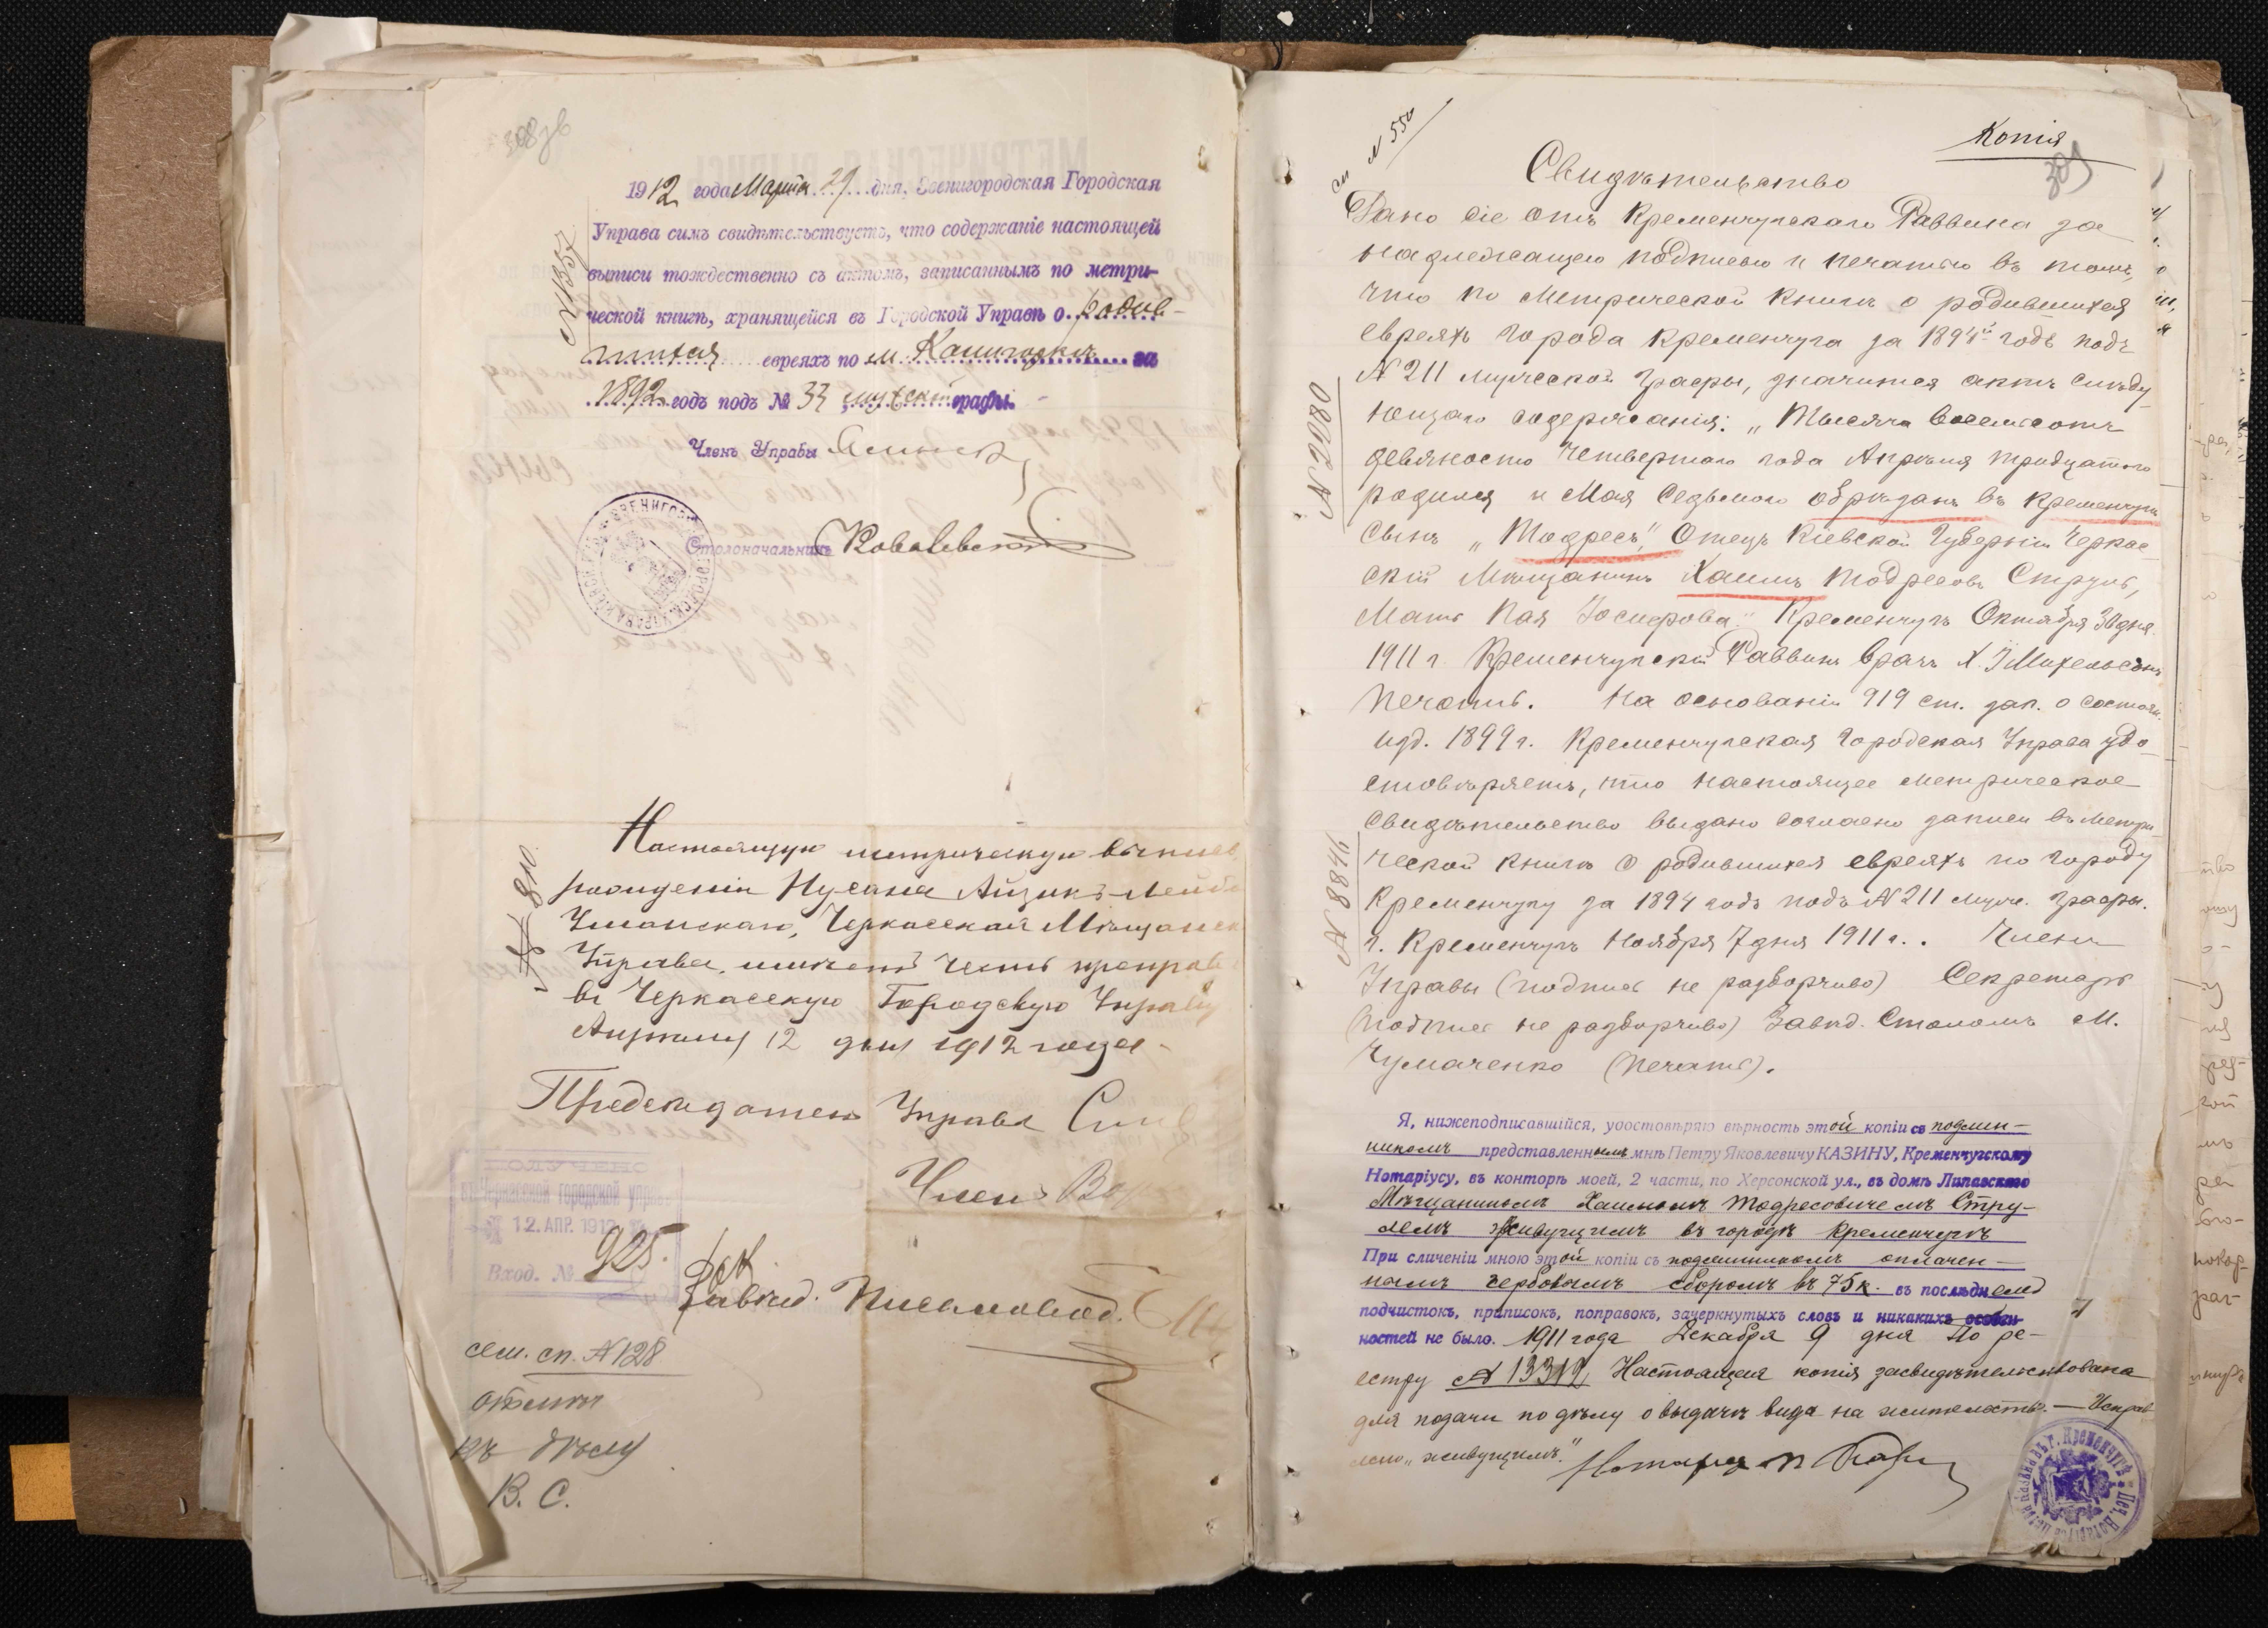 308 зв
1912 года Марта 29 дня, Звенигородская Городская
Управа симъ свидѣтельствуетъ, что содержаніе настоящей
выписи тождественно съ актомъ, записаннымъ по метри-
ческой книгѣ, хранящейся въ Городской Управѣ о родив-
шихся евреяхъ по м. за
1892 годъ подъ № 33 мужской графы.
№ 1357
Членъ Управы
Столоначальникъ Ковалевскій
Настоящую метрическую выпись
рожденіи Нусана Айзикъ-Лейб
Уманскаго, Черкасская Мѣщанск
Управа, имѣетъ честь препров
въ Черкасскую Городскую Управу
Апрѣля 12 дня 1912 года.
№ 810
Предсѣдатель Управы
Членъ
ПОЛУЧЕНО
Черкасской городской управ
12. АПР. 1912
Вход. № 925.
Завѣд. Письмовод.
сем. сп. № 128
къ дѣлу
В. С.
Копія
309
см № 550
Свидѣтельство
Дано сіе отъ Кременчугскаго Раввина за
надлежащею подписью и печатью въ томъ,
что по метрической книгѣ о родившихся
евреяхъ города Кременчуга за 1894й годъ подъ
№ 211 мужской графы, значится актъ слѣду-
ющаго содержанія: „Тысяча восемьсотъ
девяносто четвертаго года Апрѣля тридцатаго
родился и Мая седьмого обрѣзанъ въ Кременчугѣ
сынъ „Тодресъ", Отецъ Кіевской Губерніи Черкас-
скій Мѣщанинъ Хаимъ Тодресовъ Струль,
Мать Пая Іосифова." Кременчугъ Октября 30 дня
1911 г. Кременчугскій Раввинъ врачъ Х. І Михельсонъ
Печать. На основаніи 919 ст. зак. о состоян.
изд. 1899 г. Кременчугская Городская Управа удо-
стовѣряетъ, что настоящее метрическое
свидѣтельство выдано согласно записи въ метри-
ческой книгѣ о родившихся евреяхъ по городу
Кременчугу за 1894 годъ подъ № 211 муж. графы.
г. Кременчугъ Ноября 7 дня 1911 г.. Членъ
Управы (подпись не разборчиво) Секретарь
(подпись не разборчиво) Завѣд. Столомъ М.
Чумаченко (печать).
№ 2080
№ 8846
Я, нижеподписавшійся, удостовѣряю вѣрность этой копіи съ подлин-
никомъ представленнымъ мнѣ Петру Яковлевичу КАЗИНУ, Кременчугскому
Нотаріусу, въ конторѣ моей, 2 части, по Херсонской ул., въ домѣ Липавскаго
Мѣщаниномъ Хаимомъ Тодресовичемъ Стру-
лемъ живущимъ въ городѣ Кременчугѣ
При сличеніи мною этой копіи съ подлинникомъ оплачен-
нымъ гербовымъ сборомъ въ 75 к. въ послѣднемъ
подчистокъ, приписокъ, поправокъ, зачеркнутыхъ словъ и никакихъ особен-
ностей не было. 1911 года Декабря 9 дня По ре-
естру № 13312 Настоящая копія засвидѣтельствована
для подачи по дѣлу о выдачѣ вида на жительство. — Исправ
лено „живущимъ".
Нотаріусъ П Казинъ